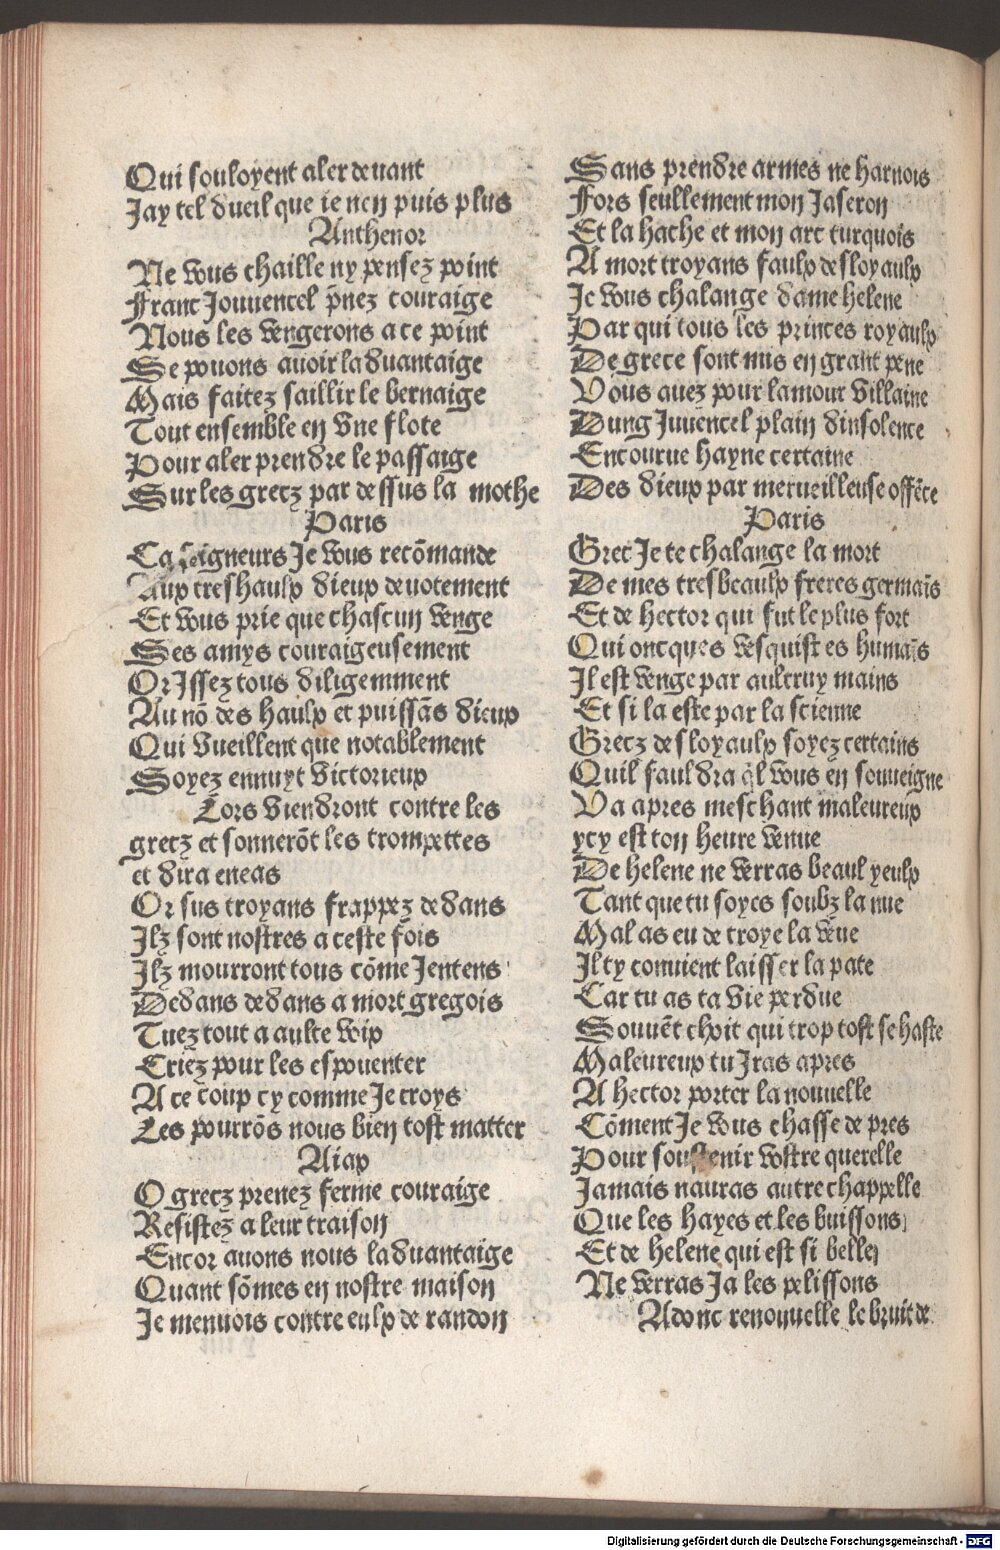 Qui souloyent aler deuant
Jay tel dueil que ie nen puis plus
Anthenor
Ne vous chaille ny pensez point
Franc Jouuencel p̄nez couraige
Nous les vengerons a ce point
Se pouons auoir laduantaige
Mais faitez saillir le bernaige
Tout ensemble en vne flote
Pour aler prendre le passaige
Sur les grecz par dessus la mothe
Paris
Ca seigneurs Je vous recōmande
Aux treshaulx dieux deuotement
Et vous prie que chascun venge
Ses amys couraigeusement
Or Jssez tous diligemment
Au nō des haulx et puissās dieux
Qui vueillent que notablement
Soyez ennuyt victorieux
Lors viendront contre les
grecz et sonnerōt les trompettes
et dira eneas
Or sus troyans frappez dedans
Jlz sont nostres a ceste fois
Jlz mourront tous cōme Jentens
Dedans dedans a mort gregois
Tuez tout a aulte voix
Criez pour les espouenter
A ce coup cy comme Je croys
Les pourrōs nous bien tost matter
Aiax
O grecz prenez ferme couraige
Resistez a leur traison
Encor auons nous laduantaige
Quant sōmes en nostre maison
Je menuois contre eulx de randon
Sans prendre armes ne harnois
Fors seullement mon Jaseron
Et la hache et mon arc turquois
A mort troyans faulx desloyaulx
Je vous chalange dame helene
Par qui tous les princes royaulx
De grece sont mis en grant pene
Vous auez pour lamour villaine
Dung Juuencel plain dinsolence
Encourue hayne certaine
Des dieux par merueilleuse offēce
Paris
Grec Je te chalange la mort
De mes tresbeaulx freres germaīs
Et de hector qui fut le plus fort
Qui oncques vesquist es humaīs
Jl est venge par aultruy mains
Et si la este par la scienne
Grecz desloyaulx soyez certains
Quil fauldra q̄l vous en souueigne
Va apres meschant maleureux
ycy est ton heure venue
De helene ne verras beaul yeulx
Tant que tu soyes soubz la nue
Mal as eu de troye la veue
Jl ty conuient laisser la pate
Car tu as ta vie perdue
Souuēt choit qui trop tost se haste
Maleureux tu Jras apres
A hector porter la nouuelle
Cōment Je vous chasse de pres
Pour soustenir vostre querelle
Jamais nauras autre chappelle
Que les hayes et les buissons
Et de helene qui est si belle
Ne verras Ja les pelissons
Adonc renouuelle le bruit de
Digitalisierung gefördert durch die Deutsche Forschungsgemeinschaft - DFG